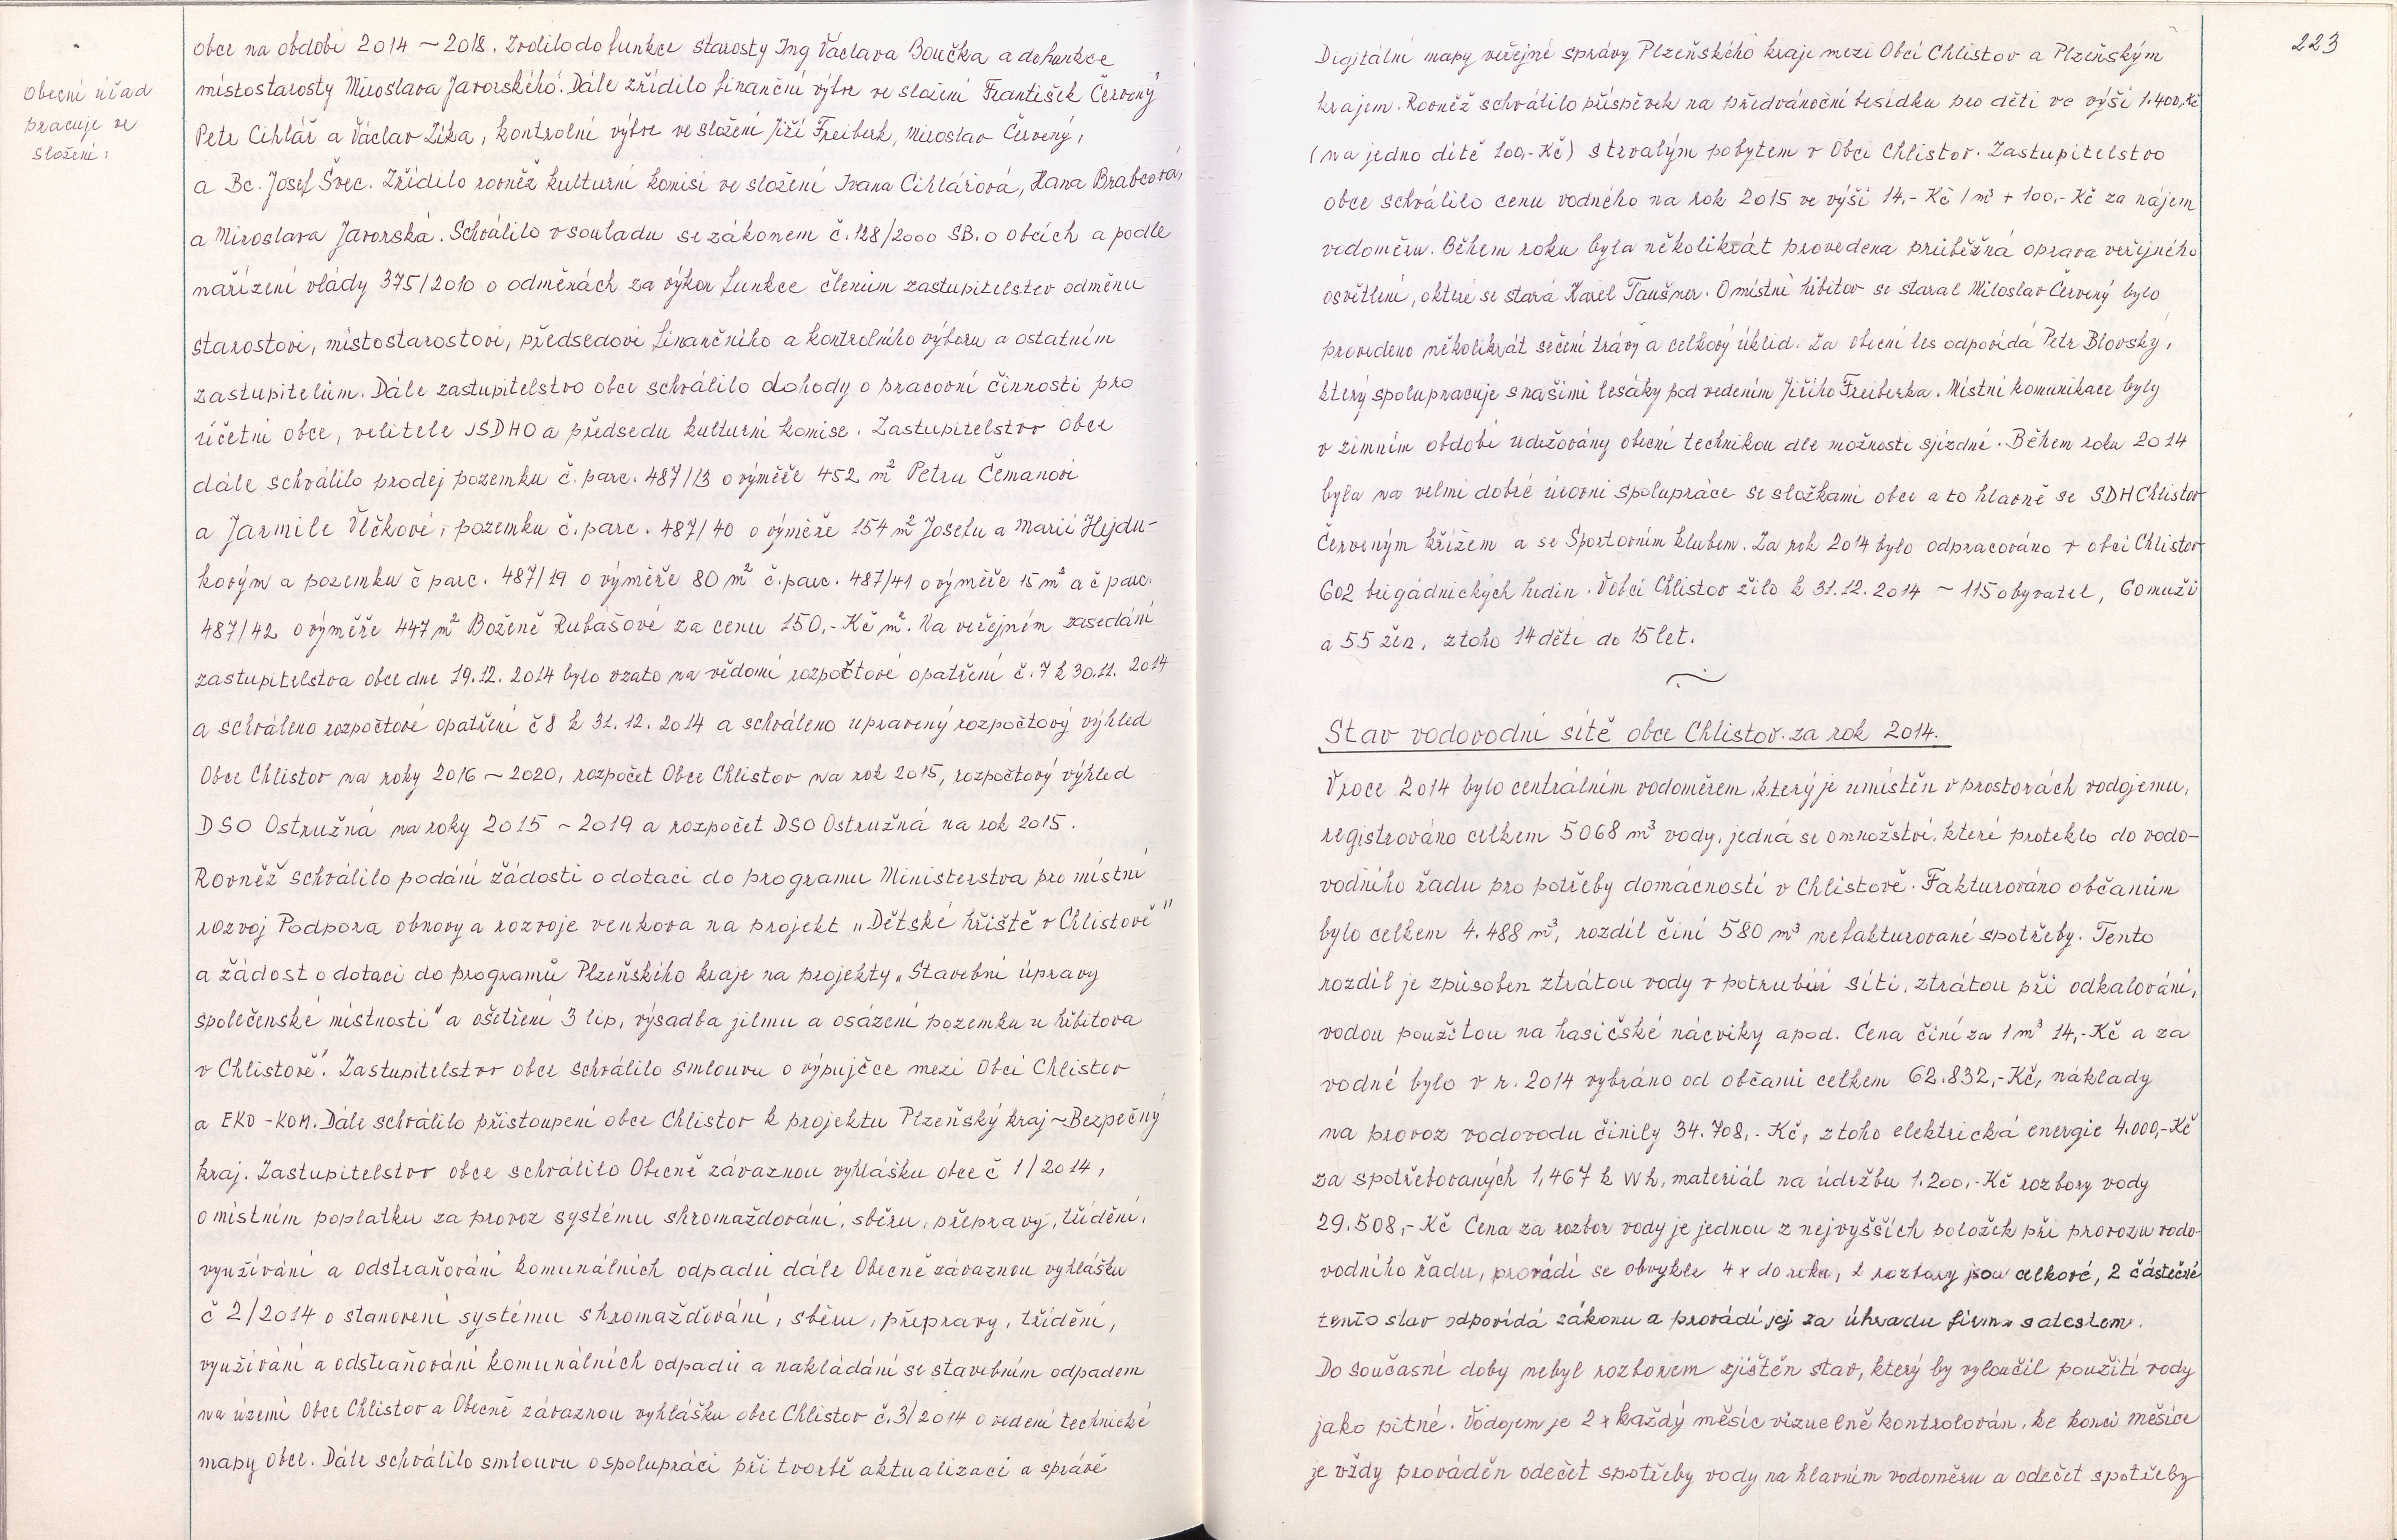 Obecní úřad
pracuje ve
složení:
obce na období 2014 ~ 2018. Zvolilo do funkce starosty Ing Václava Boučka a do funkce
místostarosty Miroslava Javorského. Dále zřídilo finanční výbor ve složení František Červený
Petr Cihlář a Václav Zíka, kontrolní výbor ve složení Jiří Freiberk, Miroslav Červený,
a Bc. Josef Švec. Zřídilo rovněž kulturní komisi ve složení Ivana Cihlářová, Hana Brabcová,
a Miroslava Javorská. Schválilo v souladu se zákonem č. 128/2000 SB. o obcích a podle
nařízení vlády 375/2010 o odměnách za výkon funkce členům zastupitelstev odměnu
starostovi, místostarostovi, předsedovi finančního a kontrolního výboru a ostatním
zastupitelům. Dále zastupitelstvo obce schválilo dohody o pracovní činnosti pro
účetní obce, velitele JSDHO a předsedu kulturní komise. Zastupitelstvo obce
dále schválilo prodej pozemku č. parc. 487/13 o výměře 452 m² Petru Čemanovi
a Jarmile Vlčkové, pozemku č. parc. 487/40 o výměře 154 m² Josefu a Marii Hejdu-
kovým a pozemku č parc. 487/19 o výměře 80 m² č. parc. 487/41 o výměře 15 m² a č parc.
487/42 o výměře 447 m² Boženě Rubášové za cenu 150,- Kč m². Na veřejném zasedání
zastupitelstva obce dne 19.12. 2014 bylo vzato na vědomí rozpočtové opatření č. 7 k 30.11. 2014
a schváleno rozpočtové opatření č 8 k 31. 12. 2014 a schváleno upravený rozpočtový výhled
Obce Chlistov na roky 2016 ~ 2020, rozpočet Obce Chlistov na rok 2015, rozpočtový výhled
DSO Ostružná na roky 2015 ~ 2019 a rozpočet DSO Ostružná na rok 2015.
Rovněž schválilo podání žádosti o dotaci do programu Ministerstva pro místní
rozvoj Podpora obnovy a rozvoje venkova na projekt „Dětské hřiště v Chlistově"
a žádost o dotaci do programů Plzeňského kraje na projekty „Stavební úpravy
společenské místnosti" a ošetření 3 lip, výsadba jilmu a osázení pozemku u hřbitova
v Chlistově". Zastupitelstvo obce schválilo smlouvu o výpujčce mezi Obcí Chlistov
a EKO - KOM. Dále schválilo přistoupení obce Chlistov k projektu Plzeňský kraj ~ Bezpečný
kraj. Zastupitelstvo obce schválilo Obecně závaznou vyhlášku obce č 1/2014,
o místním poplatku za provoz systému shromažďování, sběru, přepravy, třídění,
využívání a odstraňování komunálních odpadů dále Obecně závaznou vyhlášku
č 2/2014 o stanovení systému shromažďování, sběru, přepravy, třídění,
využívání a odstraňování komunálních odpadů a nakládání se stavebním odpadem
na území Obce Chlistov a Obecně závaznou vyhlášku obce Chlistov č. 3/2014 o vedení technické
mapy obce. Dále schválilo smlouvu o spolupráci při tvorbě aktualizaci a správě
223
Digitální mapy veřejné správy Plzeňského kraje mezi Obcí Chlistov a Plzeňským
krajem. Rovněž schválilo příspěvek na předvánoční besídku pro děti ve výši 1.400,-Kč
(na jedno dítě 100,- Kč) s trvalým pobytem v Obci Chlistov. Zastupitelstvo
obce schválilo cenu vodného na rok 2015 ve výši 14,- Kč / m³ + 100,- Kč za nájem
vodoměru. Během roku byla několikrát provedena průběžná oprava veřejného
osvětlení, o které se stará Karel Taušner. O místní hřbitov se staral Miloslav Červený bylo
provedeno několikrát sečení trávy a celkový úklid. Za obecní les odpovídá Petr Blovský,
který spolupracuje s našimi lesáky pod vedením Jiřího Freiberka. Místní komunikace byly
v zimním období udržovány obecní technikou dle možnosti sjízdné. Během roku 2014
byla na velmi dobré úrovni spolupráce se složkami obce a to hlavně se SDH Chlistov
Červeným křížem a se Sportovním klubem. Za rok 2014 bylo odpracováno v obci Chlistov
602 brigádnických hodin. V obci Chlistov žilo k 31.12. 2014 ~ 115 obyvatel, 60 mužů
a 55 žen, z toho 14 dětí do 15 let.
Stav vodovodní sítě obce Chlistov za rok 2014.
V roce 2014 bylo centrálním vodoměrem, který je umístěn v prostorách vodojemu,
registrováno celkem 5068 m³ vody, jedná se o množství, které proteklo do vodo-
vodního řadu pro potřeby domácností v Chlistově. Fakturováno občanům
bylo celkem 4.488 m³, rozdíl činí 580 m³ nefakturované spotřeby. Tento
rozdíl je způsoben ztrátou vody v potrubní síti, ztrátou při odkalování,
vodou použitou na hasičské nácviky apod. Cena činí za 1 m³ 14,- Kč a za
vodné bylo v r. 2014 vybráno od občanů celkem 62.832,- Kč, náklady
na provoz vodovodu činily 34.708,- Kč, z toho elektrická energie 4.000,- Kč
za spotřebovaných 1,467 k Wh, materiál na údržbu 1.200,- Kč rozbory vody
29.508,- Kč Cena za rozbor vody je jednou z nejvyšších položek při provozu vodo-
vodního řadu, provádí se obvykle 4 x do roka, 2 rozbory jsou celkové, 2 částečné
tento stav odpovídá zákonu a provádí jej za úhradu firma s atestem.
Do současné doby nebyl rozborem zjištěn stav, který by vyloučil použití vody
jako pitné. Vodojem je 2 x každý měsíc vizuelně kontrolován, ke konci měsíce
je vždy prováděn odečet spotřeby vody na hlavním vodoměru a odečet spotřeby